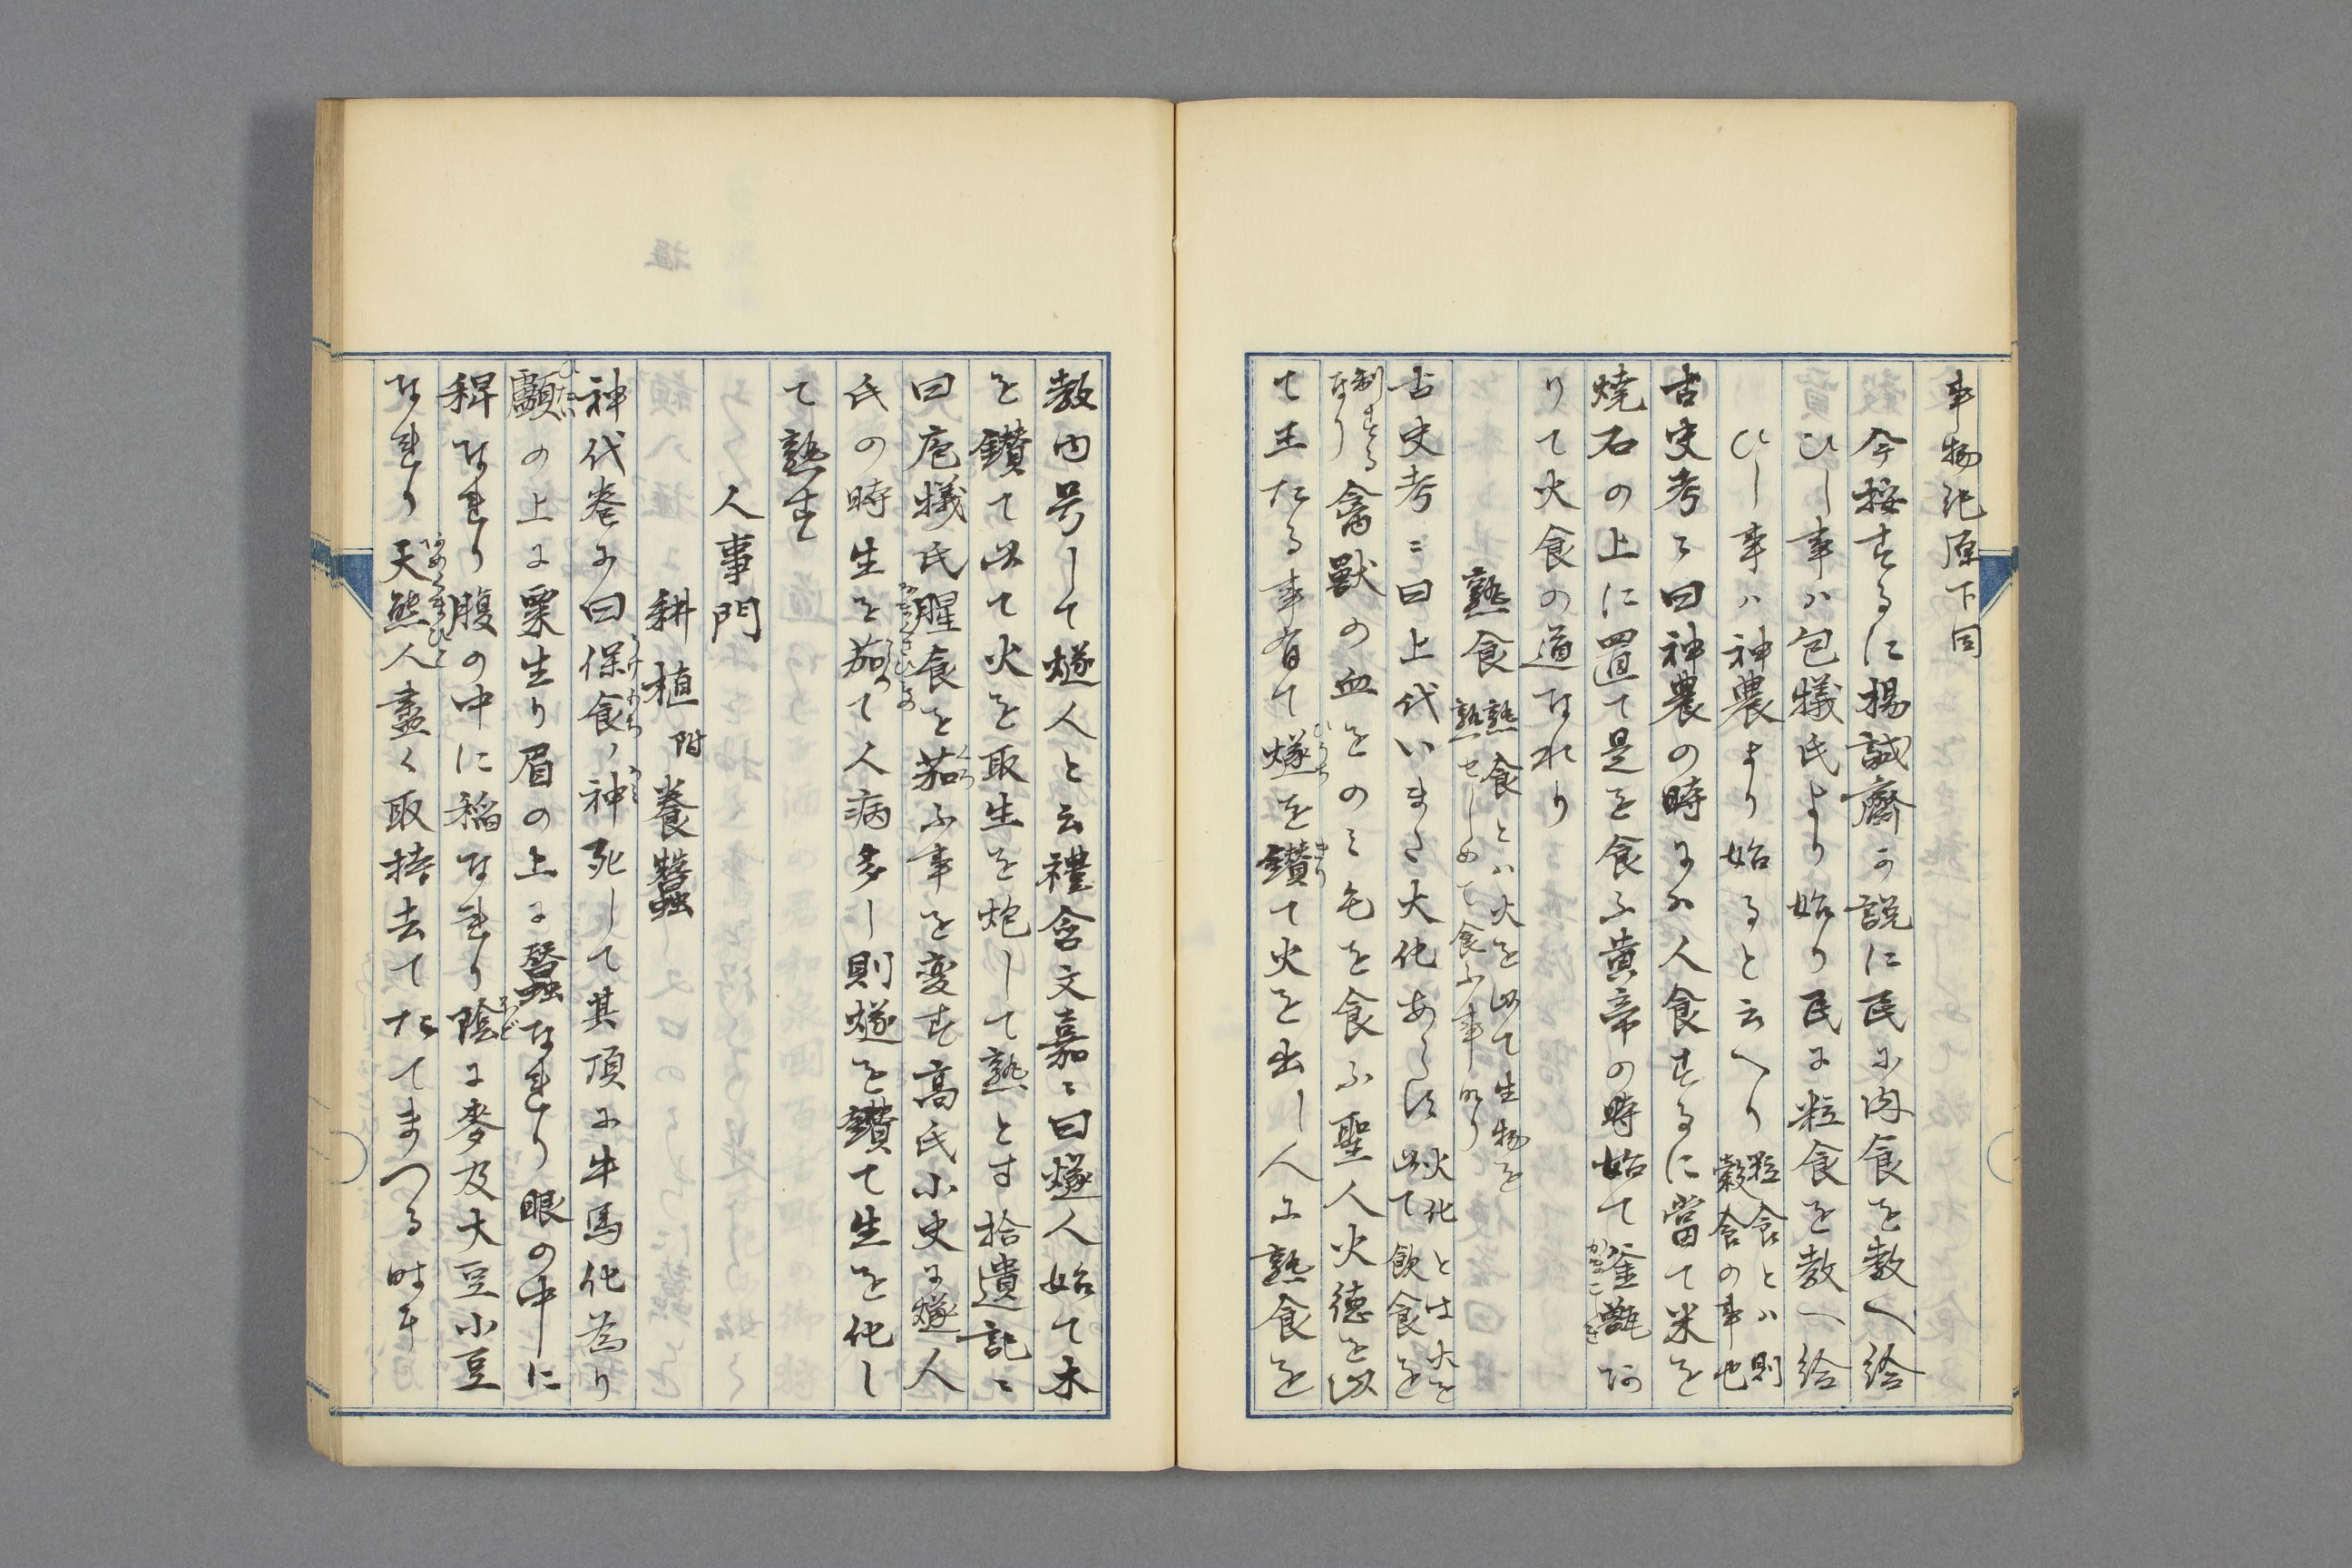 事物紀原下同
今按するに楊誠齋の説に民に肉食を教へ給
ひし事は包犠氏より始り民に粒食を教へ給
ひし事ハ神農より始ると云へり粒食とハ則
穀食の事也
古史考に曰神農の時には人食するに當て米を
焼石の上に置て是を食ふ黄帝の時始て釜甑あ
かまこしき
りて火食の道なれり
熟食熟食とハ火を以て生物を
熟せしめて食ふ事なり
古史考ニ曰上代いまた火化あらす火化とは火を
以て飲食を
制する
なり禽獣の血をのミ毛を食ふ聖人火徳を以
て王たる事有て燧を鑚て火を出し人に熟食を
ひうち
きり
教内号して燧人と云禮含文嘉ニ曰燧人始て木
を鑚て以て火を取生を炮して熟とす拾遺記ニ
曰庖犠氏腥食を茹ふ事を変す高氏小史に燧人
なまくさひもの
くらつ
氏の時生を茹て人病多し則燧を鑚て生を化し
くらつ
て熟す
人事門
耕植附養蠶
神代巻に曰保食ノ神死して其頂に牛馬化為り
うけもち
かミ
顱の上に粟生り眉の上に蠶なれり眼の中に
ひたい
稗なれり腹の中に稲なれり陰に麥及大豆小豆
ほど
なれり天熊人盡く取持去てたてまつる時ニ
あめくまひと